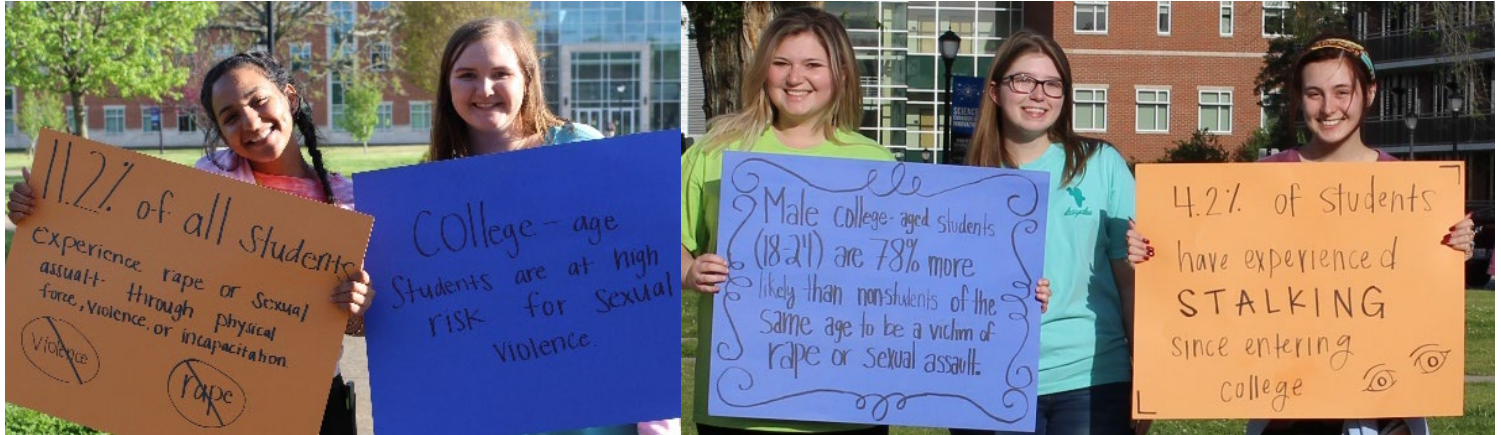 11.2% of all students
experience rape or sexual
assualt through physical
force, violence, or incapacitation.
violence
rape
College-age
Students are at high
risk for sexual
violence.
Male college-aged students
(18-24) are 78% more
likely than nonstudents of the
same age to be a victim of
rape or sexual assault.
4.2% of students
have experienced
STALKING
since entering
college
SCIENCE